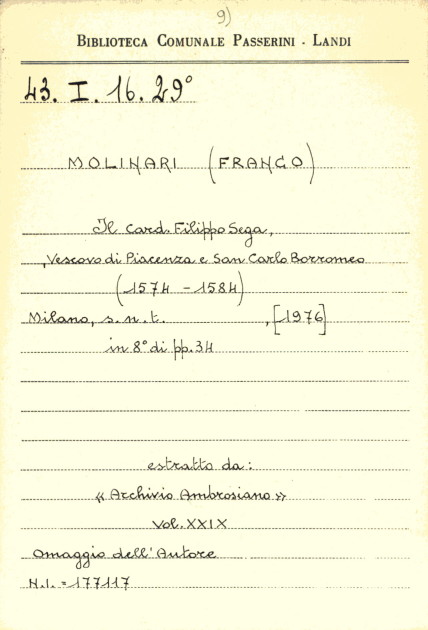 9)
BIBLIOTECA COMUNALE PASSERINI - LANDI
43. I. 16. 29°
MOLINARI (FRANCO)
Il Card. Filippo Sega,
Vescovo di Piacenza e San Carlo Borromeo
(1574 - 1584)
Milano, s. n. t. , [1976]
in 8° di pp. 34
estratto da:
« Archivio Ambrosiano »
Vol. XXIX
Omaggio dell'Autore
N.I. = 177117